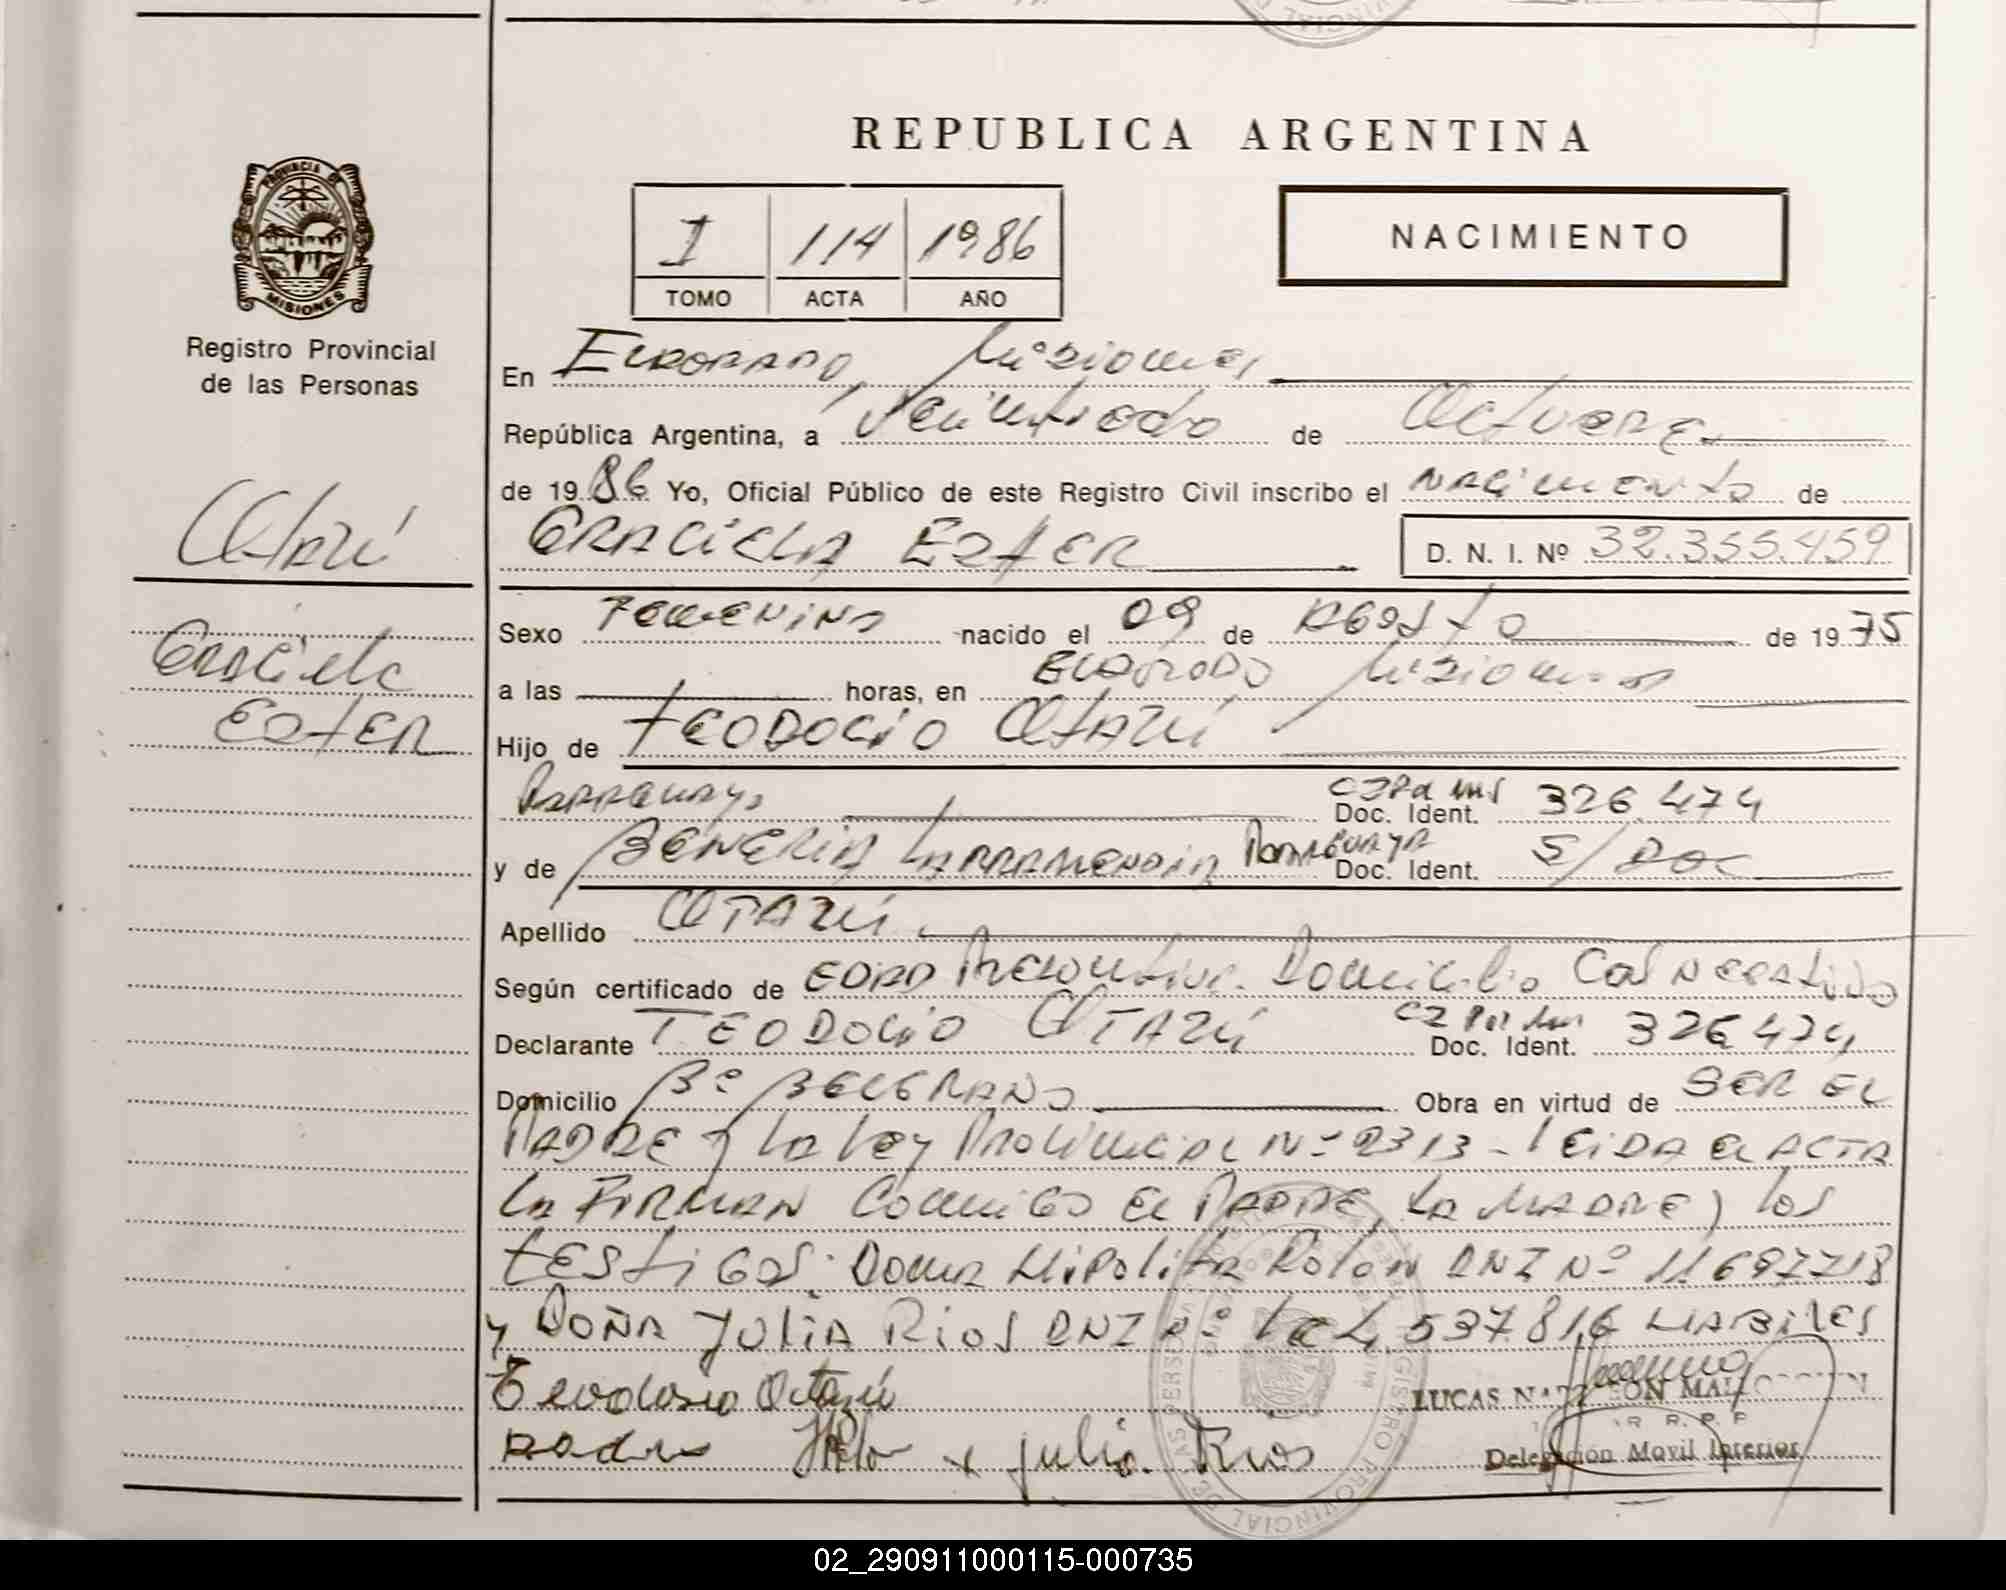 REPUBLICA ARGENTINA
PROVINCIA DE
MISIONES
Registro Provincial
de las Personas
I 114 1986
TOMO ACTA AÑO
NACIMIENTO
En ELDORADO, Misiones,
República Argentina, a veintiodo de OCTUBRE
de 1986 Yo, Oficial Público de este Registro Civil inscribo el NACimiento de
GRACIELA ESTER D. N. I. Nº 32.355.459
Otazú
Graciela
ESTER
Sexo Femenino nacido el 09 de AGOSTO de 1975
a las horas, en ELDORADO Misiones
Hijo de TEODOCIO OTAZÚ
PARAGUAYO Doc. Ident. 326.474
y de LARRAMENDIA PARAGUAYA Doc. Ident. S/DOC
Apellido OTAZÚ
Según certificado de EDAD Presuntiva. Domicilio Cod NEGATIVO
Declarante TEODOCIO OTAZÚ Doc. Ident. 326.474
Domicilio Bº BELGRANO Obra en virtud de SER EL
PADRE y La Ley PROVINCIAL Nº 2313 - LEIDA EL ACTA
LA FIRMAN Conmigo EL PADRE, LA MADRE y los
TESTIGOS: DOÑA HiPolitA Rolon DNI Nº 11697718
y DOÑA JULIA RIOS DNI Nº 537816 HABILES
Teodosio Otazú
Julia Rios
LUCAS MAL
R. P. P
Delegación Movil Interior
REGISTRO PROVINCIAL DE LAS PERSONAS
02_290911000115-000735